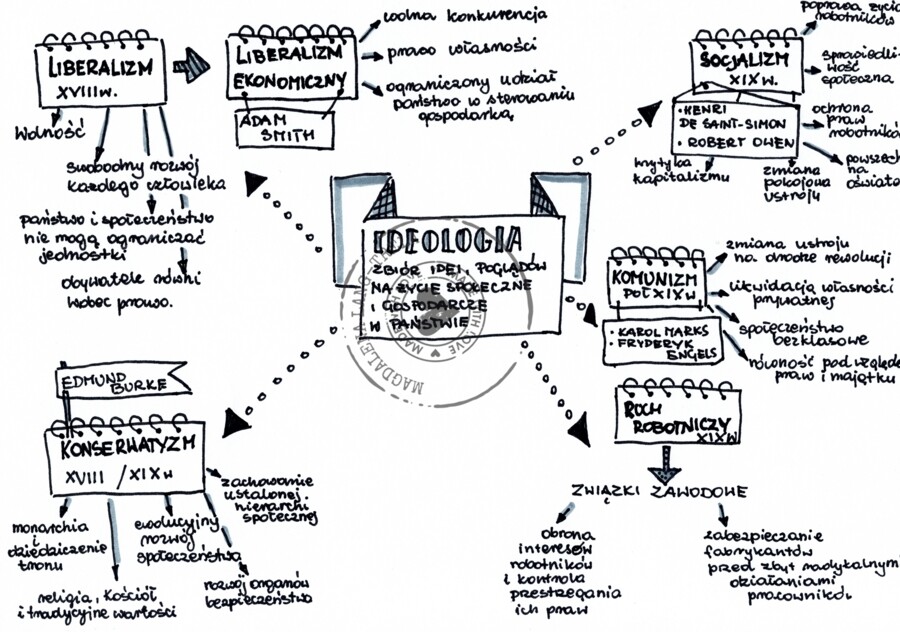 LIBERALIZM
XVIIIW.
WOLNOŚĆ
swobodny rozwój
każdego człowieka
państwo i społeczeństwo
nie mogą ograniczać
jednostki
obywatele równi
wobec prawa.
LIBERALIZM
EKONOMICZNY
ADAM
SMITH
wolna konkurencja
prawo własności
ograniczony udział
państwa w sterowaniu
gospodarką
SOCJALIZM
XIXw.
• HENRI
DE SAINT-SIMON
• ROBERT OWEN
poprawa życia
robotników
sprawiedli-
wość
społeczna
ochrona
praw
robotników
powszech
na
oświata
krytyka
kapitalizmu
zmiana
pokojowa
ustroju
IDEOLOGIA
ZBIÓR IDEI, POGLĄDÓW
NA ŻYCIE SPOŁECZNE
I GOSPODARCZE
W PAŃSTWIE
MAGDALENA
MADE WITH LOVE
KOMUNIZM
POŁ XIXw
• KAROL MARKS
• FRYDERYK
ENGELS
zmiana ustroju
na drodze rewolucji
likwidacja własności
prywatnej
społeczeństwo
bezklasowe
równość pod względe
praw i majątku
EDMUND
BURKE
KONSERWATYZM
XVIII / XIXw
monarchia
i
dziedziczenie
tronu
religia, Kościół
i tradycyjne wartości
ewolucyjny
rozwój
społeczeństwa
rozwój organów
bezpieczeństwa
zachowanie
ustalonej
hierarchi
społecznej
RUCH
ROBOTNICZY
XIXW
ZWIĄZKI ZAWODOWE
obrona
interesów
robotników
i kontrola
przestrzegania
ich praw
zabezpieczanie
fabrykantów
przed zbyt radykalnymi
działaniami
pracowników